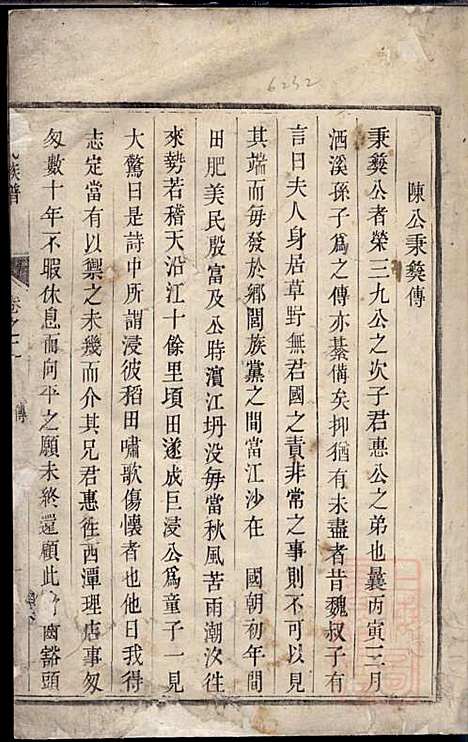 6252
陳公秉彝傳
秉彝公者榮三九公之次子君惠公之弟也曩丙寅三月
洒溪孫子為之傳亦綦備矣抑猶有未盡者昔魏叔子有
言曰夫人身居草野無君國之責非常之事則不可以見
其端而每發於鄉閭族黨之間當江沙在 國朝初年間
田肥美民殷富及公時濱江坍没每當秋風苦雨潮汐徃
來勢若稽天沿江十餘里頃田遂成巨浸公為童子一見
大驚曰是詩中所謂浸彼稻田嘯歌傷懷者也他日我得
志定當有以禦之未幾而介其兄君惠徃西潭理店事匆
匆數十年不暇休息而向平之願未終還顧此 齒豁頭
族譜
卷之
傳